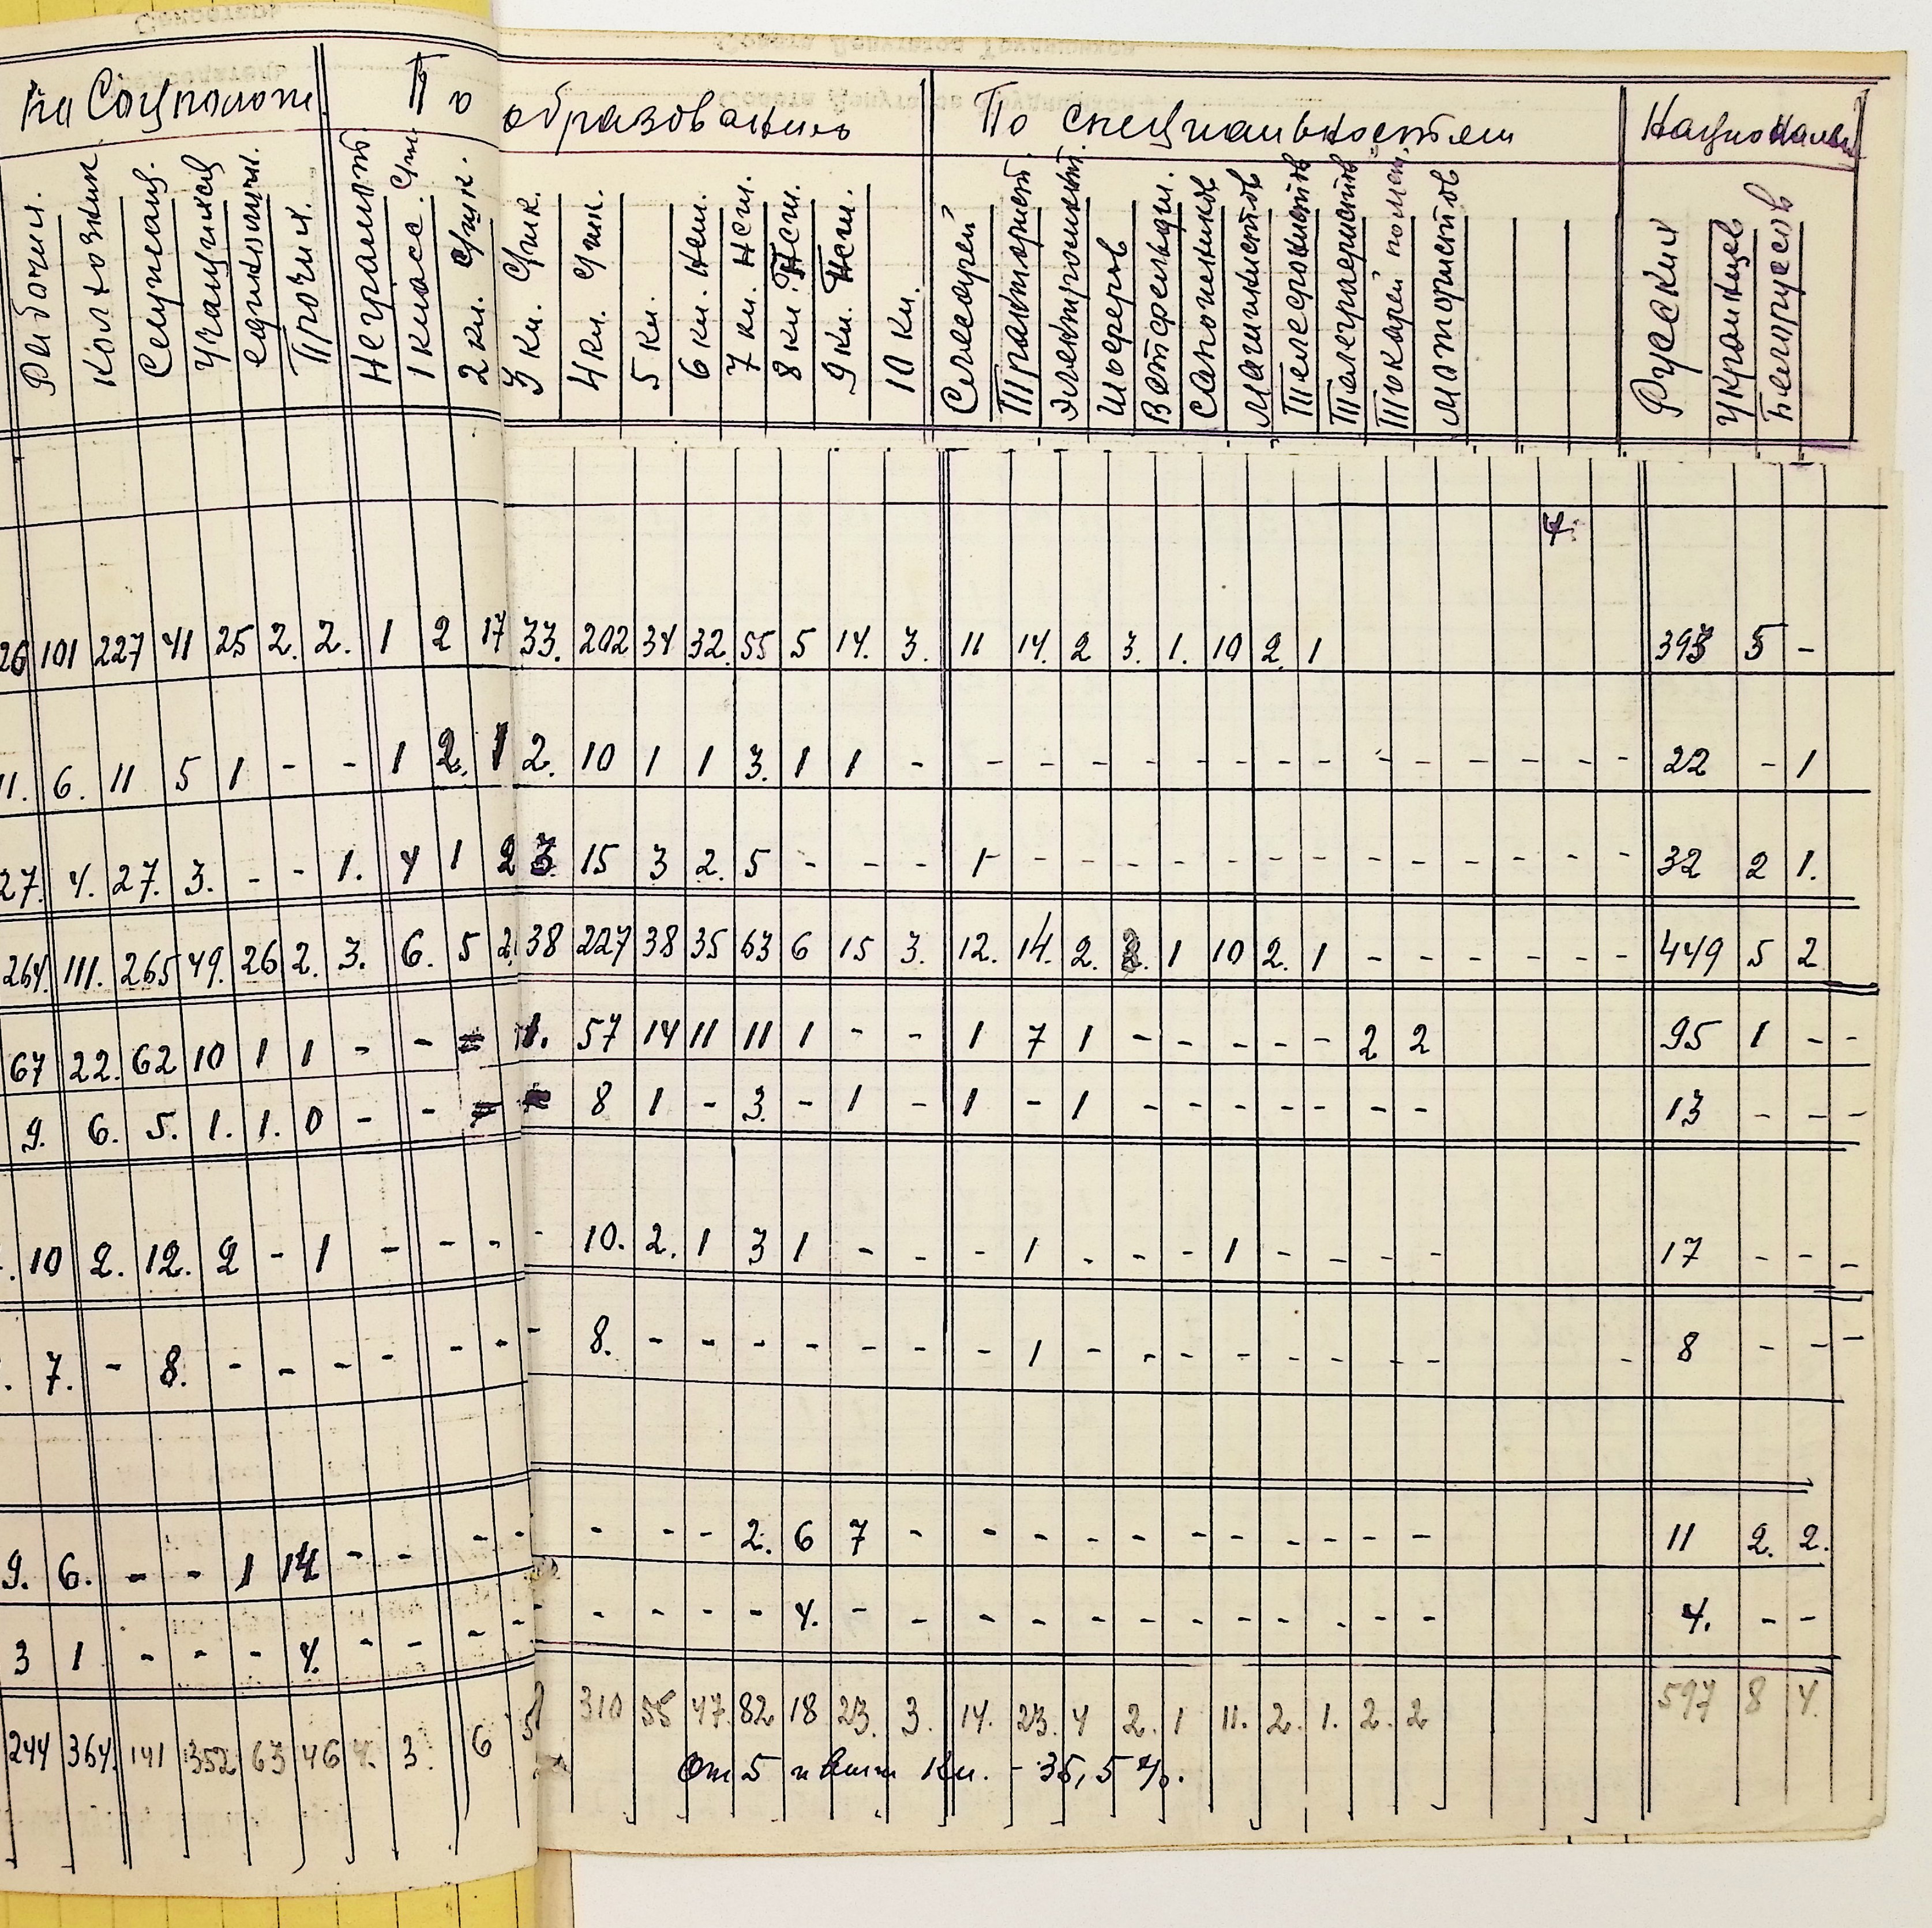 По образованию По специальностям
Рабочих. Колхозник. Служащ. Учащихся единоличн. Прочих. Неграмотн. 1 класс. 2 кл. 3 кл. 4 кл. 5 кл. 6 кл. 7 кл. 8 кл. 9 кл. 10 кл. Слесарей Трактористов Шоферов Ветфельдш. Сапожников Машинистов Телефонистов Телеграфистов Токарей Мотористов Русских Украинцев белорусов
4.
26 101 227 41 25 2. 2. 1 2 17 33. 202 34 32. 55 5 14. 3. 11 14. 2 3. 1. 10 2. 1 393 5 -
11. 6. 11 5 1 - - 1 2. 1 2. 10 1 1 3. 1 1 - - - - - - - - - - - - - - - 22 - 1
27. 4. 27. 3. - - 1. 4 1 2 3. 15 3 2. 5 - - - 1 - - - - - - - - - - - - - 32 2 1.
264. 111. 265 49. 26 2. 3. 6. 5 38 227 38 35 63 6 15 3. 12. 14. 2. 1 10 2. 1 - - - - - - 449 5 2
67 22. 62 10 1 1 - - 1. 57 14 11 11 1 - - 1 7 1 - - - - - 2 2 95 1 - -
9. 6. 5. 1. 1. 0 - - 8 1 - 3. - 1 - 1 - 1 - - - - - - - 13 - - -
10 2. 12. 2 - 1 - - - - 10. 2. 1 3 1 - - - 1 - - - 1 - - - - 17 - - -
7. - 8. - - - - - - - 8. - - - - - - - 1 - - - - - - - - - 8 - - -
9. 6. - - 1 14 - - - - - - - 2. 6 7 - - - - - - - - - - - 11 2. 2.
3 1 - - - 4. - - - - - - - - - 4. - - - - - - - - - - - - - 4. - -
244 364. 141 352 63 46 4. 3. 6 310 55 47. 82 18 23. 3. 14. 23. 4 2. 1 11. 2. 1. 2. 2 597 8 4.
От 5 и выше кл. - 35,5%.